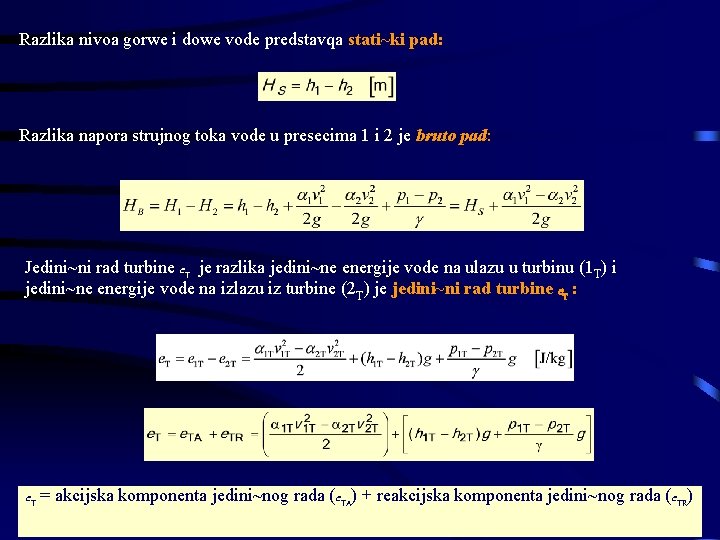 Razlika nivoa gorwe i dowe vode predstavqa stati~ki pad:
H_S = h_1 – h_2 [m]
Razlika napora strujnog toka vode u presecima 1 i 2 je bruto pad:
H_B = H_1 − H_2 = h_1 − h_2 + α_1v_1^2/2g − α_2v_2^2/2g + (p_1 − p_2)/γ = H_S + (α_1v_1^2 − α_2v_2^2)/2g
Jedini~ni rad turbine e_T je razlika jedini~ne energije vode na ulazu u turbinu (1_T) i
jedini~ne energije vode na izlazu iz turbine (2_T) je jedini~ni rad turbine e_T :
e_T = e_1T − e_2T = (α_1T v_1T^2 − α_2T v_2T^2)/2 + (h_1T − h_2T)g + (p_1T − p_2T)/γ g [J/kg]
e_T = e_TA + e_TR = ((α_1T v_1T^2 − α_2T v_2T^2)/2) + [(h_1T − h_2T)g + (p_1T − p_2T)/γ g]
e_T = akcijska komponenta jedini~nog rada (e_TA) + reakcijska komponenta jedini~nog rada (e_TR)